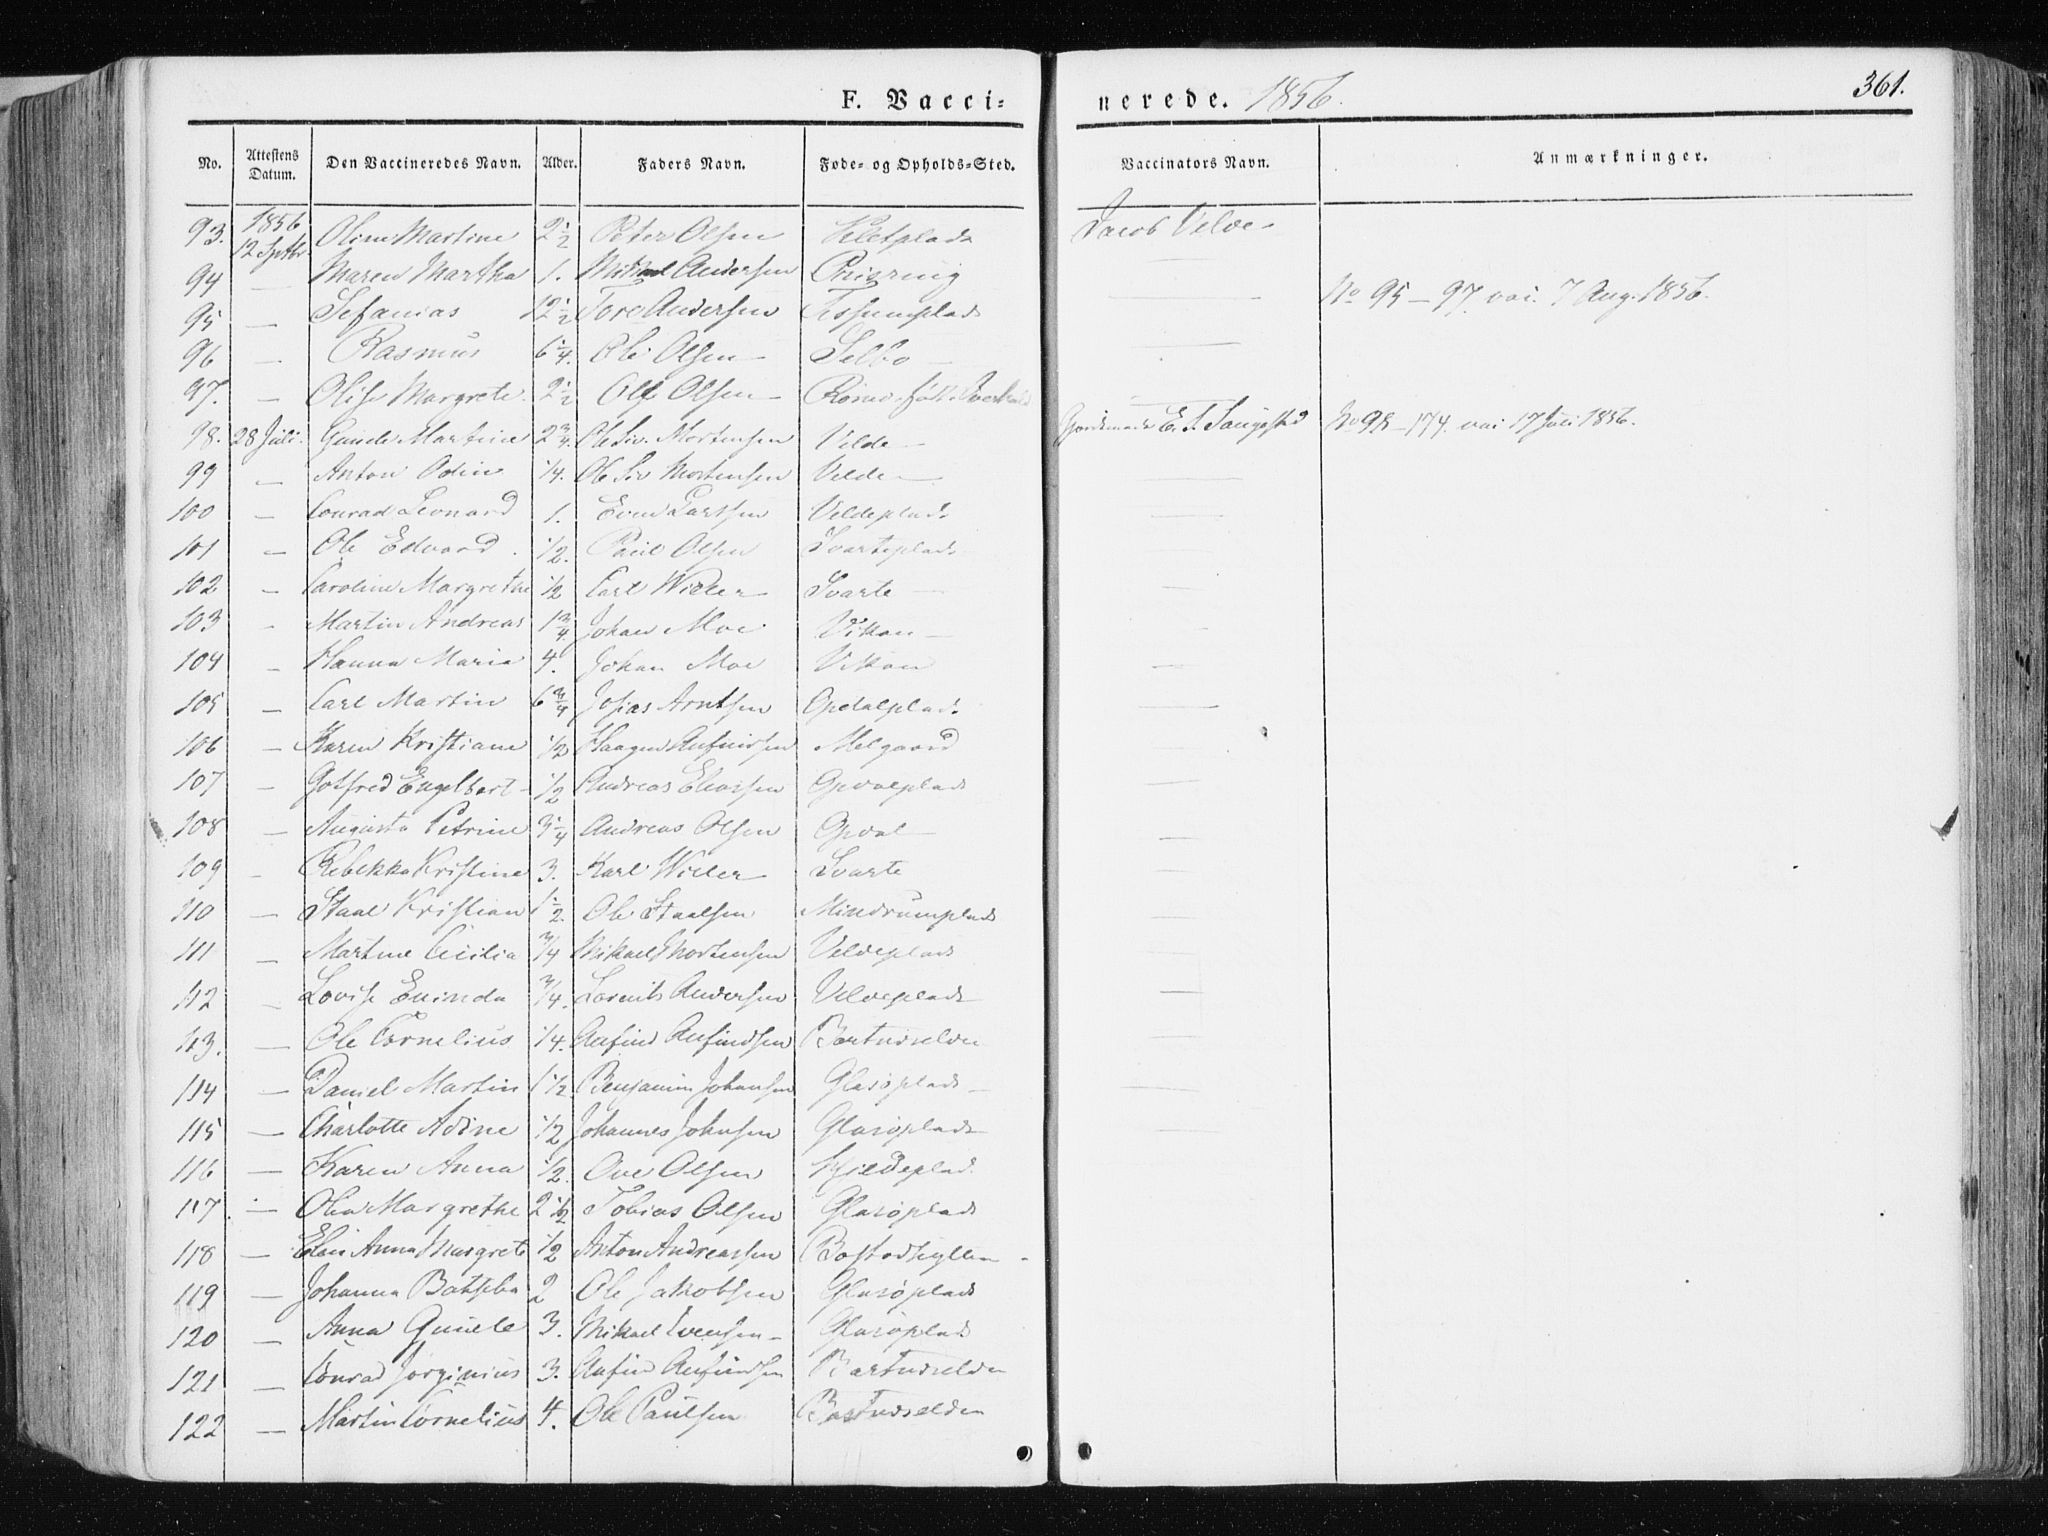 F. Vacci- nerede. 1856. 361.
No. Attestens Datum. Den Vaccineredes Navn. Alder. Faders Navn. Føde- og Opholds-Sted. Vaccinators Navn. Anmærkninger.
93. 1856 12 Septbr Oline Martine 2 1/2 Peter Olsen Jacob Velde
94 — Maren Martha 1. Mikael Andersen
95 — Sefanias 12 1/2 Tore Andersen — No 95 – 97 vac. 7 Aug. 1856.
96 — Rasmus 6 1/4. Ole Olsen — Selbo —
97. — Margrete 2 1/2 Ole Olsen —
98. 28 Juli. Martine 2 3/4. Ole Mortensen Velde — No 98 – 174. vac 17 Juli 1856.
99 — Anton Odin 1/4. Ole Mortensen Velde —
100 — Conrad Leonard 1. Even Larssen Veldeplads
101 — Ole Edvard. 1/2. Paul Olsen Svarteplads
102 — Caroline Margrethe 1/2 Carl Svarte —
103 - Martin Andreas 1 3/4. Johan Moe Vikan —
104 — Hanna Maria 4. Johan Moe Vikan
105 — Carl Martin 6 3/4 Josias Arntsen Opdalplads
106 — Karen Kristiane 1/2 Haagen Anfindsen Melgaard
107 — Gotfred Engelbert 1/2 Andreas Eliassen
108 — Augusta Petrine 3 1/4 Andreas Olsen
109 — Rebekka Kristine 3. Karl Svarte
110 — Staal Kristian 1 1/2. Ole Staalsen Mindrumplads
111 — Martine Cicilia 3/4 Mikael Mortensen Veldeplads
112 — Lovise 3/4. Lorents Andersen Veldeplads
113. — Ole Cornelius 1/4. Anfind Anfindsen
114 — Daniel Martin 1 1/2 Benjamin Johansen Glasøplads —
115 — Charlotte Adine 1/2 Johannes Johnsen Glasøplads
116 — Karen Anna 1/2. Ove Olsen
117. — Olia Margrethe 2 1/2 Tobias Olsen Glasøplads
118 — Anna Margrete 1/2 Anton Andreassen
119 — Johanna Batseba 2 Ole Jakobsen Glasøplads
120 — Anna 3. Mikael Evensen — Glasøplads
121 — Conrad Jørginius 3. Anfin Anfindsen
122 — Martin Cornelius 4. Ole Paulsen